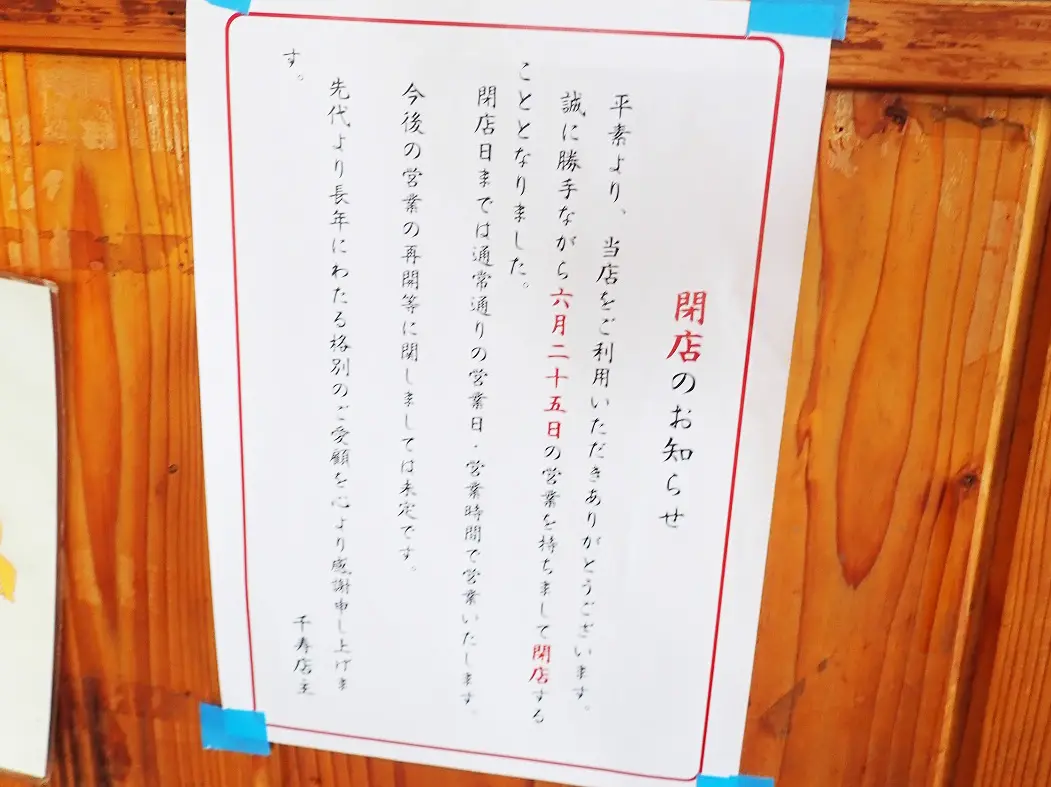 閉店のお知らせ
平素より、当店をご利用いただきありがとうございます。
誠に勝手ながら六月二十五日の営業を持ちまして閉店する
こととなりました。
閉店日までは通常通りの営業日・営業時間で営業いたします。
今後の営業の再開等に関しましては未定です。
先代より長年にわたる格別のご愛顧を心より感謝申し上げま
す。
千寿店主